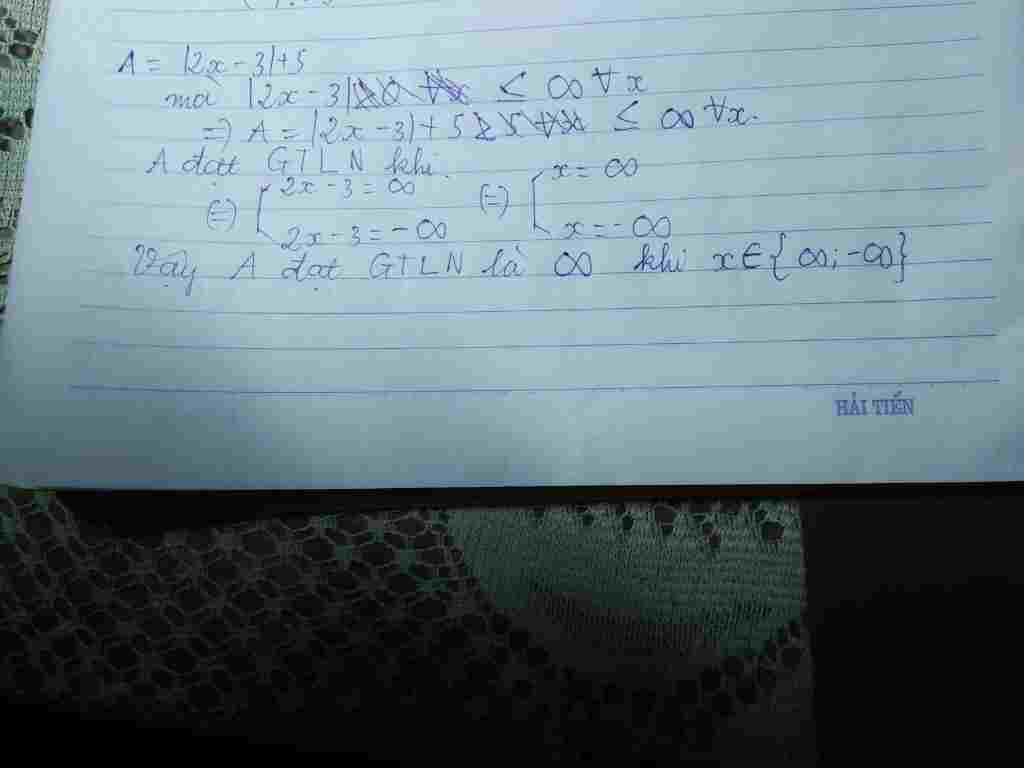 A = |2x - 3| + 5
mà |2x - 3| ≥ 0 ∀x ≤ ∞ ∀x
=> A = |2x - 3| + 5 ≥ 5 ∀x ≤ ∞ ∀x.
A đạt GTLN khi.
(=) [ 2x - 3 = ∞ (=) [ x = ∞
2x - 3 = - ∞ x = - ∞
Vậy A đạt GTLN là ∞ khi x ∈ { ∞; -∞}
HẢI TIẾN